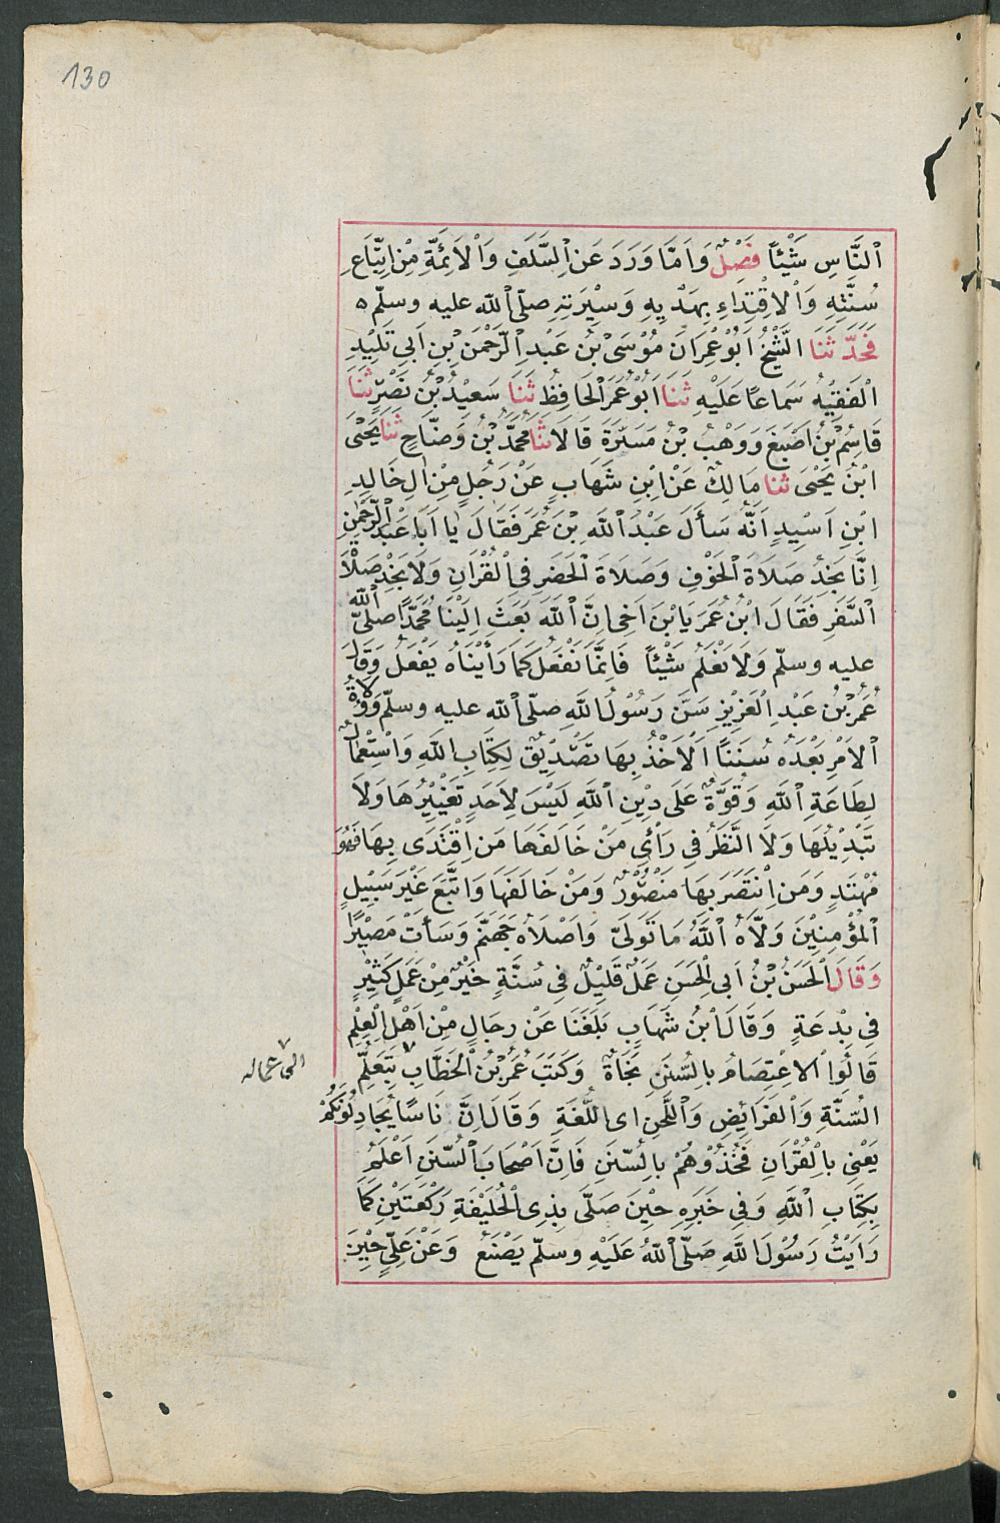 130
اَلنَّاسِ شَيْئًا فَصْلٌ وَاَمَّا وَرَدَ عَنِ السَّلَفِ وَالْاَئِمَّةِ مِنْ اِتِّبَاعِ
سُنَّتِهِ وَالْاِقْتِدَاءِ بِهَدْيِهِ وَسِيْرَتِهِ صلّى الله عليه وسلّم ه
فَحَدَّثَنَا الشَّيْخُ اَبُوْ عِمْرَانَ مُوْسَى بْنُ عَبْدِ الرَّحْمٰنِ بْنِ اَبِي تَلِيْدٍ
الْفَقِيْهُ سَمَاعًا عَلَيْهِ ثَنَا اَبُوْ عُمَرَ الْحَافِظُ ثَنَا سَعِيْدُ بْنُ نَصْرٍ ثَنَا
قَاسِمُ بْنُ اَصْبَغَ وَوَهْبُ بْنُ مَسَرَّةَ قَالَا ثَنَا مُحَمَّدُ بْنُ وَضَّاحٍ ثَنَا يَحْيَى
ابْنُ يَحْيَى ثَنَا مَالِكٌ عَنِ ابْنِ شَهَابٍ عَنْ رَجُلٍ مِنْ اٰلِ خَالِدِ
ابْنِ اَسِيْدٍ اَنَّهُ سَأَلَ عَبْدَ اللهِ بْنَ عُمَرَ فَقَالَ يَا اَبَا عَبْدِ الرَّحْمٰنِ
اِنَّا نَجِدُ صَلَاةَ الْخَوْفِ وَصَلَاةَ الْحَضَرِ فِي الْقُرْاٰنِ وَلَا نَجِدُ صَلَاةَ
السَّفَرِ فَقَالَ ابْنُ عُمَرَ يَا بْنَ اَخِي اِنَّ اللهَ بَعَثَ اِلَيْنَا مُحَمَّدًا صلّى الله
عليه وسلّم وَلَا نَعْلَمُ شَيْئًا فَاِنَّمَا نَفْعَلُ كَمَا رَأَيْنَاهُ يَفْعَلُ وَقَالَ
عُمَرُ بْنُ عَبْدِ الْعَزِيْزِ سَنَّ رَسُوْلُ اللهِ صلّى الله عليه وسلّم وَوُلَاةُ
الْاَمْرِ بَعْدَهُ سُنَنًا اَلْاَخْذُ بِهَا تَصْدِيْقٌ لِكِتَابِ اللهِ وَاسْتِعْمَالٌ
لِطَاعَةِ اللهِ وَقُوَّةٌ عَلَى دِيْنِ اللهِ لَيْسَ لِاَحَدٍ تَغْيِيْرُهَا وَلَا
تَبْدِيْلُهَا وَلَا النَّظَرُ فِي رَأْيِ مَنْ خَالَفَهَا مَنِ اقْتَدَى بِهَا فَهُوَ
مُهْتَدٍ وَمَنِ انْتَصَرَ بِهَا مَنْصُوْرٌ وَمَنْ خَالَفَهَا وَاتَّبَعَ غَيْرَ سَبِيْلِ
الْمُؤْمِنِيْنَ وَلَّاهُ اللهُ مَا تَوَلَّى وَاَصْلَاهُ جَهَنَّمَ وَسَأَتْ مَصِيْرًا
وَقَالَ الْحَسَنُ بْنُ اَبِي الْحَسَنِ عَمَلٌ قَلِيْلٌ فِي سُنَّةٍ خَيْرٌ مِنْ عَمَلٍ كَثِيْرٍ
فِي بِدْعَةٍ وَقَالَ ابْنُ شَهَابٍ بَلَغَنَا عَنْ رِجَالٍ مِنْ اَهْلِ الْعِلْمِ
قَالُوا الْاِعْتِصَامُ بِالسُّنَنِ نَجَاةٌ وَكَتَبَ عُمَرُ بْنُ الْخَطَّابِ بِتَعَلُّمِ
الى عماله
السُّنَّةِ وَالْفَرَائِضِ وَاللَّحْنِ اى اللُّغَةِ وَقَالَ اِنَّ نَاسًا يُجَادِلُوْنَكُمْ
يَعْنِي بِالْقُرْاٰنِ فَخُذُوْهُمْ بِالسُّنَنِ فَاِنَّ اَصْحَابَ السُّنَنِ اَعْلَمُ
بِكِتَابِ اللهِ وَفِي خَبَرِهِ حِيْنَ صَلَّى بِذِي الْحُلَيْفَةِ رَكْعَتَيْنِ كَمَا
رَاَيْتُ رَسُوْلَ اللهِ صَلَّى اللهُ عَلَيْهِ وسلّم يَصْنَعُ وَعَنْ عَلِيٍّ حِيْنَ